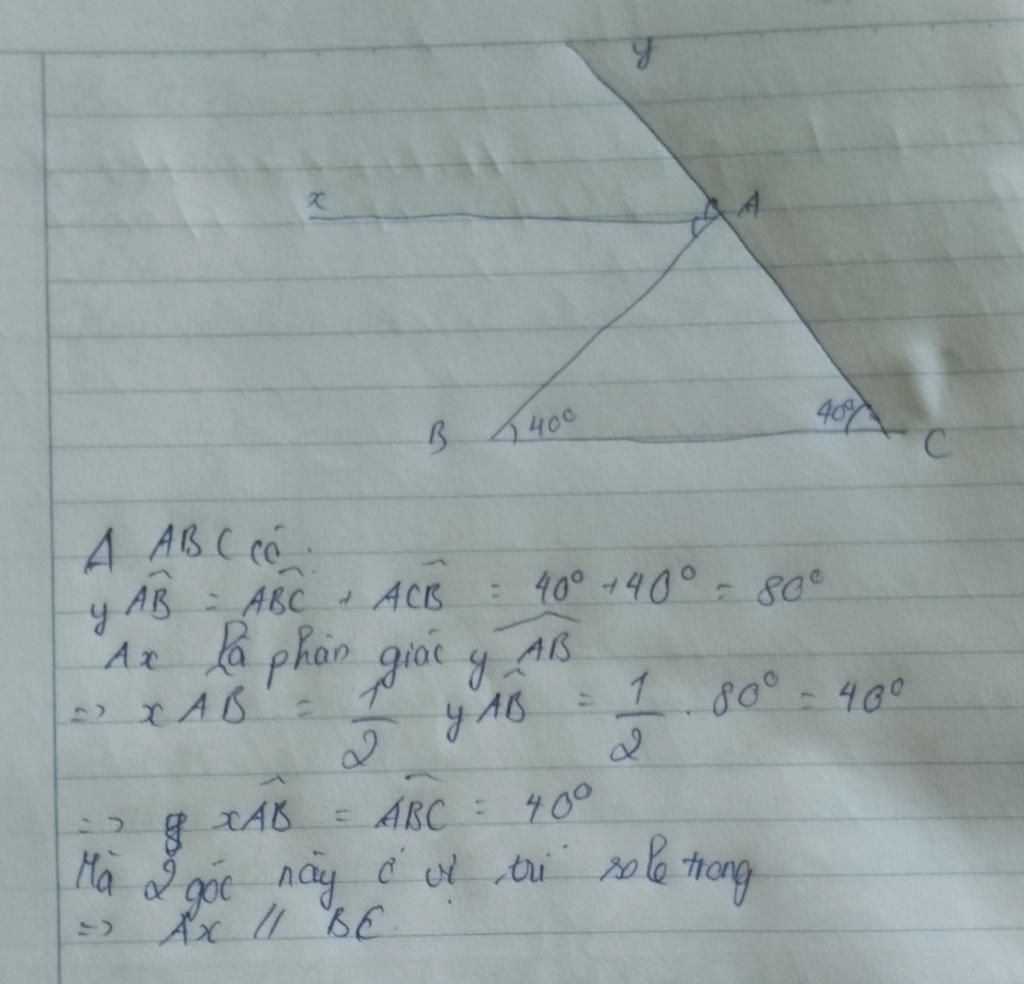 y
x
A
B
40°
40°
C
Δ ABC có:
yAB̂ = ABĈ + ACB̂ = 40° + 40° = 80°
Ax là phân giác yAB̂
=> xAB = 1/2 yAB̂ = 1/2 . 80° = 40°
=> xAB̂ = ABĈ = 40°
Mà 2 góc này ở vị trí so le trong
=> Ax // BC